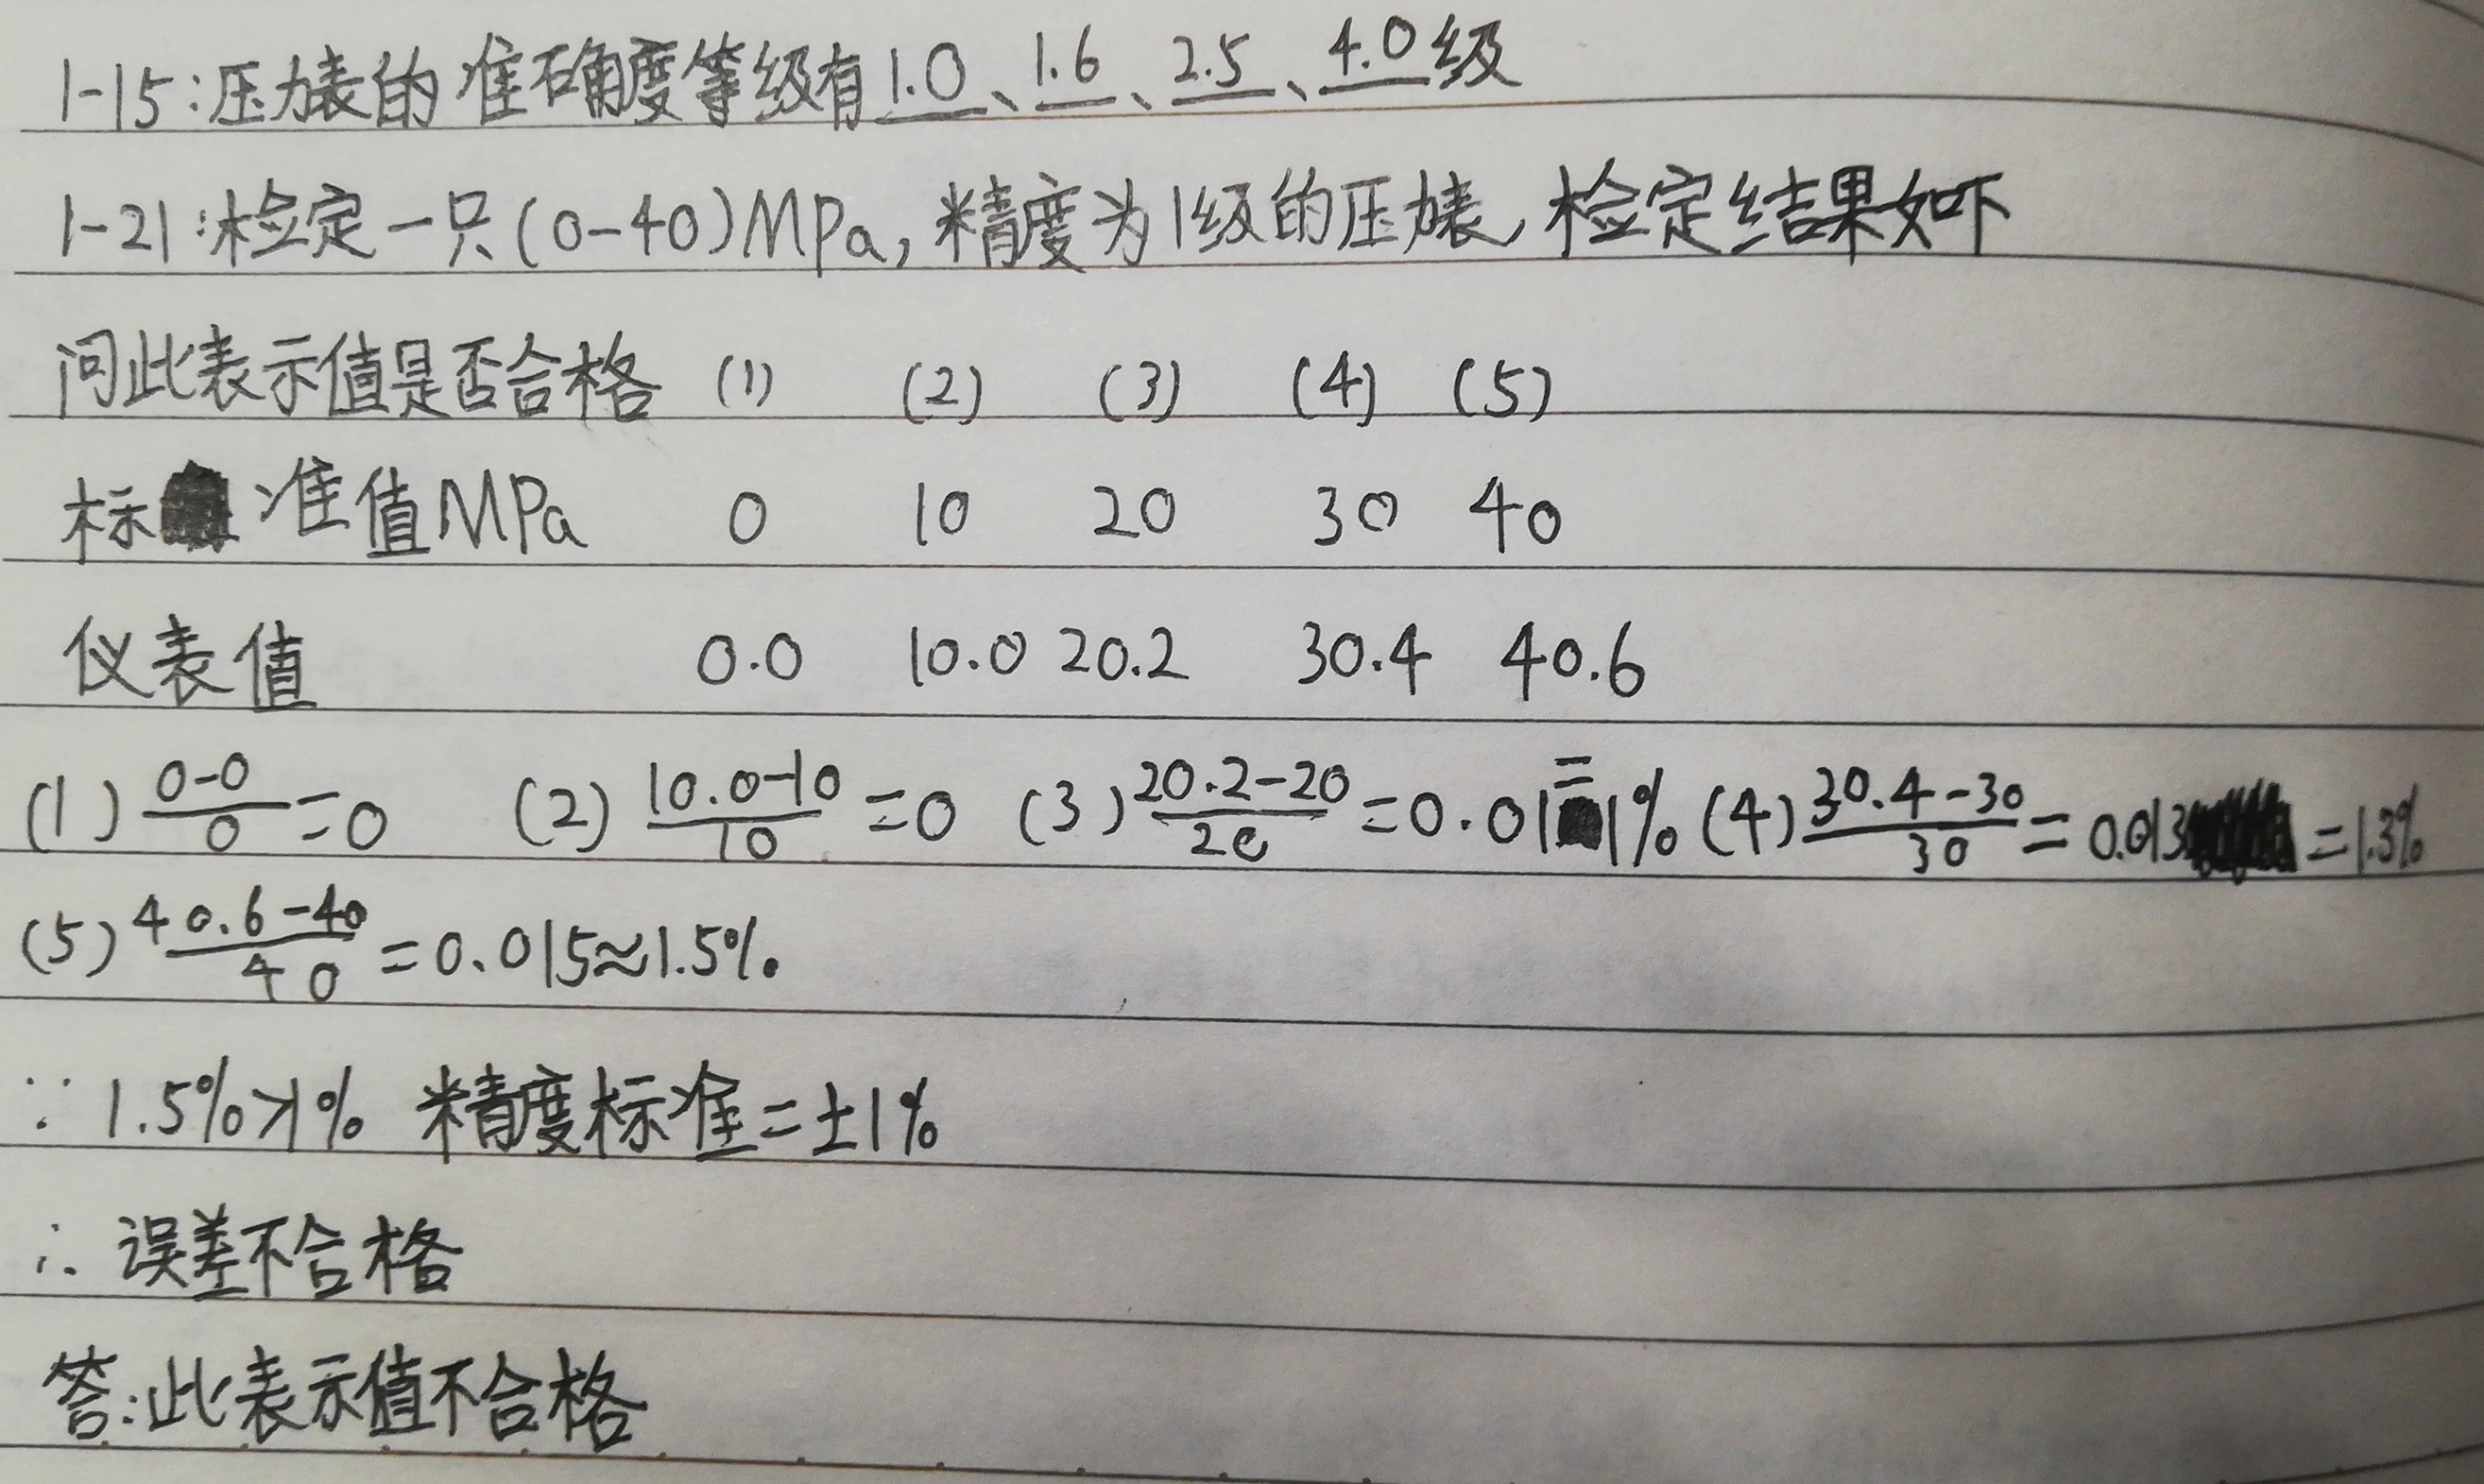 1-15:压力表的准确度等级有1.0、1.6、2.5、4.0级
1-21:检定一只(0-40)MPa,精度为1级的压力表,检定结果如下
问此表示值是否合格 (1) (2) (3) (4) (5)
标准值MPa 0 10 20 30 40
仪表值 0.0 10.0 20.2 30.4 40.6
(1) (0-0)/0=0 (2) (10.0-10)/10=0 (3) (20.2-20)/20=0.01=1% (4) (30.4-30)/30=0.013=1.3%
(5) (40.6-40)/40=0.015≈1.5%
∵ 1.5%>1% 精度标准=±1%
∴ 误差不合格
答:此表示值不合格